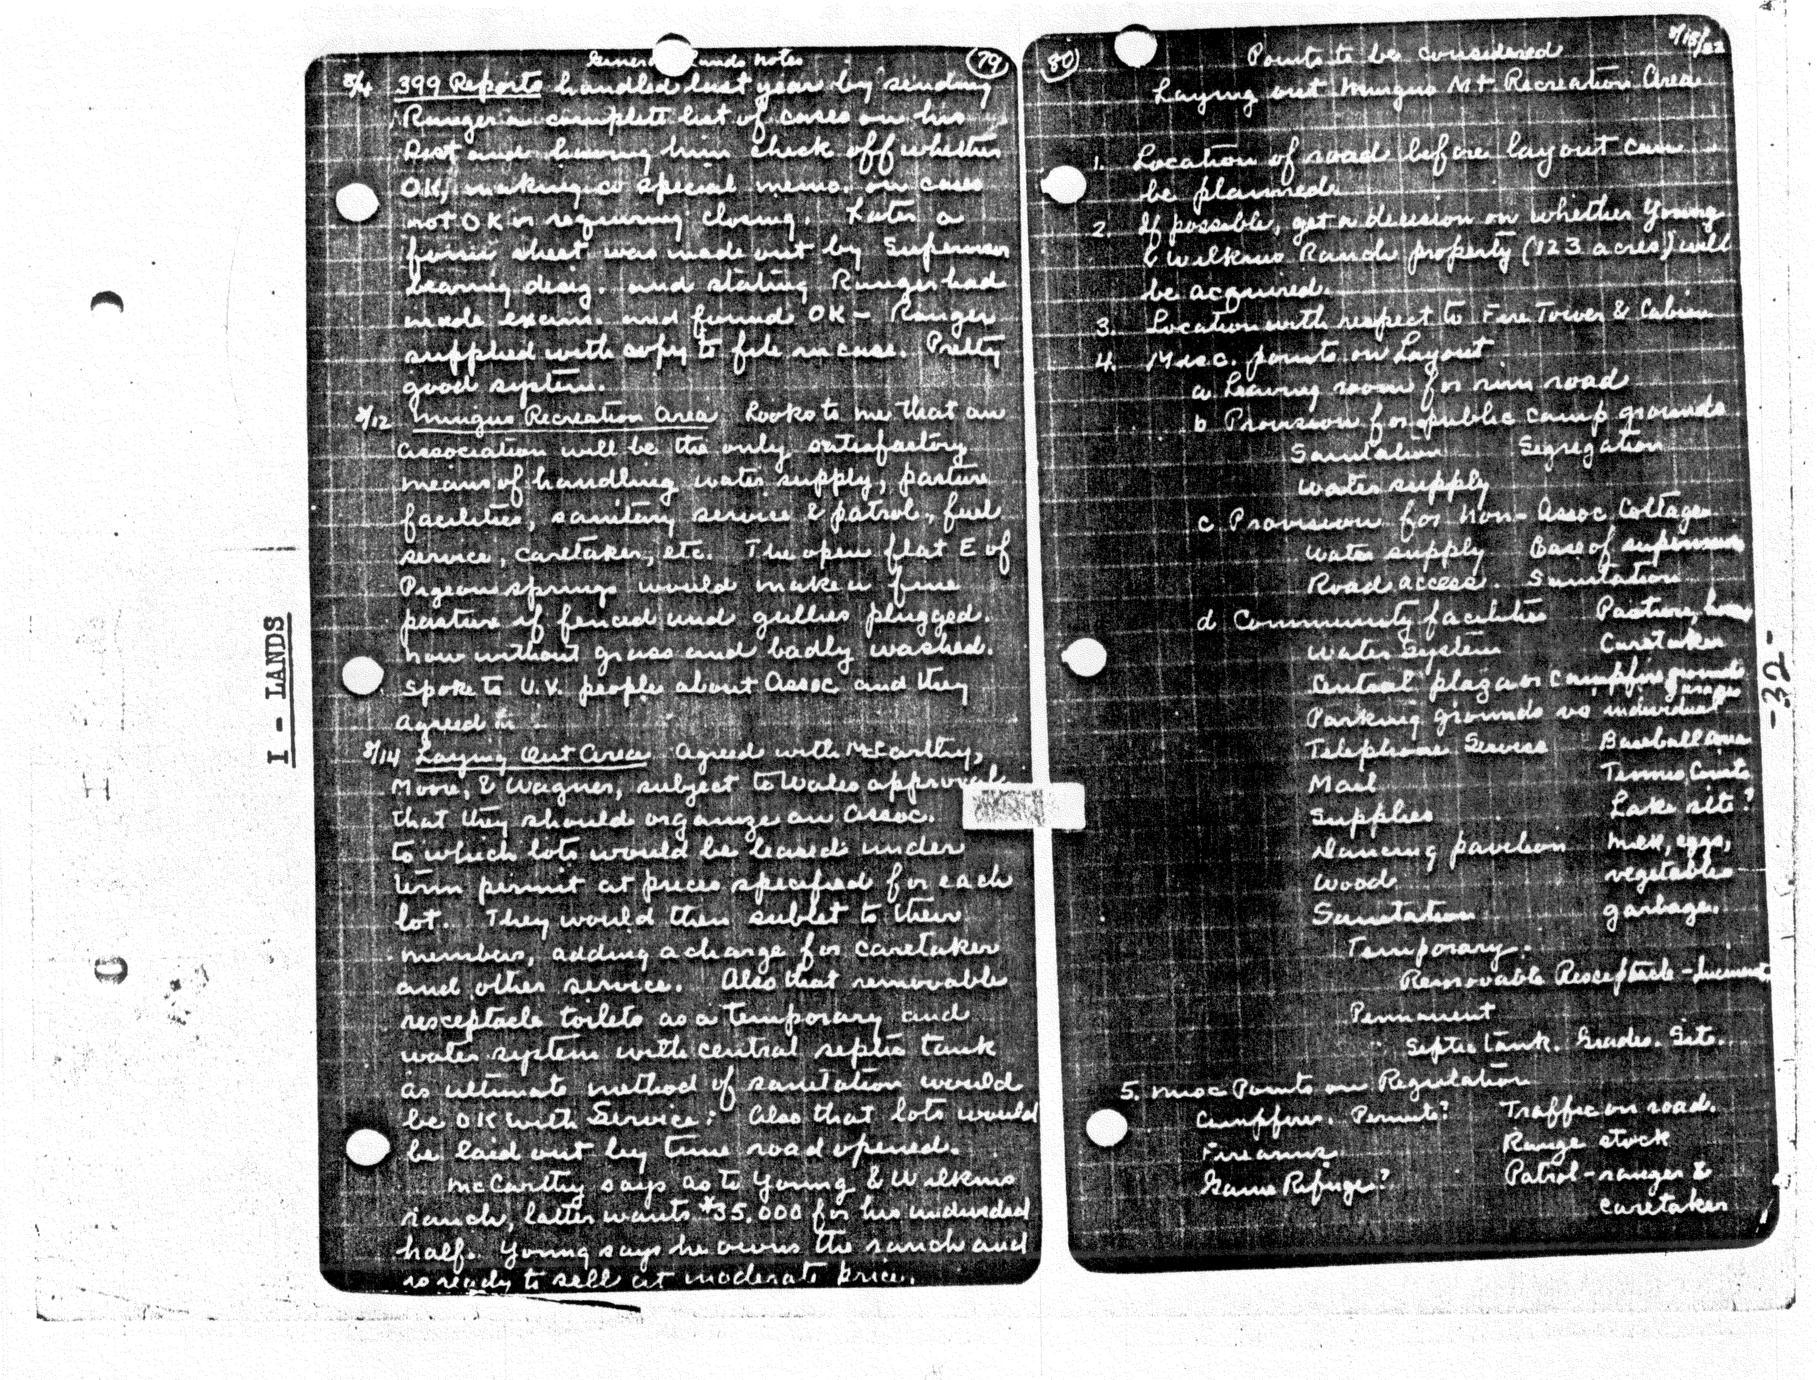 I - LANDS
General Lands Notes
79
8/4 399 Reports handled last year by sending
Ranger a complete list of cases on his
Dist and having him check off whether
OK, making special memo. on cases
not OK or requiring closing. Later a
form sheet was made out by Supervisor
bearing desig. and stating Ranger had
made exam. and found OK - Ranger
supplied with copy to file in case. Pretty
good system.
8/12 Mingus Recreation Area Looks to me that an
association will be the only satisfactory
means of handling water supply, pasture
facilities, sanitary service & patrol, fuel
service, caretaker, etc. The open flat E of
Pigeon springs would make a fine
pasture if fenced and gullies plugged.
Now without grass and badly washed.
Spoke to U.V. people about Assoc and they
agreed
8/14 Laying Out Area Agreed with McCarthy,
Moore, & Wagner, subject to Wales approval
that they should organize an Assoc.
to which lots would be leased under
term permit at prices specified for each
lot. They would then sublet to their
members, adding a charge for caretaker
and other service. Also that removable
resceptacle toilets as a temporary and
water system with central septic tank
as ultimate method of sanitation would
be OK with Service; Also that lots would
be laid out by time road opened.
McCarthy says as to Young & Wilkins
ranch, latter wants $35,000 for his undivided
half. Young says he owns the ranch and
is ready to sell at moderate price.
80
Points to be considered
8/15/22
Laying out Mingus Mt. Recreation Area
1. Location of road before layout can
be planned.
2. If possible, get a decision on whether Young
& Wilkins Ranch property (123 acres) will
be acquired.
3. Location with respect to Fire Tower & Cabin
4. Misc. points on Layout
a Leaving room for rim road
b Provision for public camp grounds
Sanitation Segregation
Water supply
c Provision for Non-Assoc Cottages
Water supply Ease of supervision
Road access. Sanitation
d Community facilities Pasture, horses
Water System Caretaker
Central plaza or campfire grounds
Parking grounds vs individual garages
Telephone Service Baseball area
Mail Tennis Courts
Supplies Lake site?
Dancing pavilion Milk, eggs,
Wood vegetables
Sanitation garbage.
Temporary.
Removable Resceptacle -
Permanent
Septic tank. Grades. Site.
5. Misc Points on Regulation
Campfires. Permits? Traffic on road.
Firearms Range stock
Game Refuge? Patrol-ranger &
caretaker
-32-